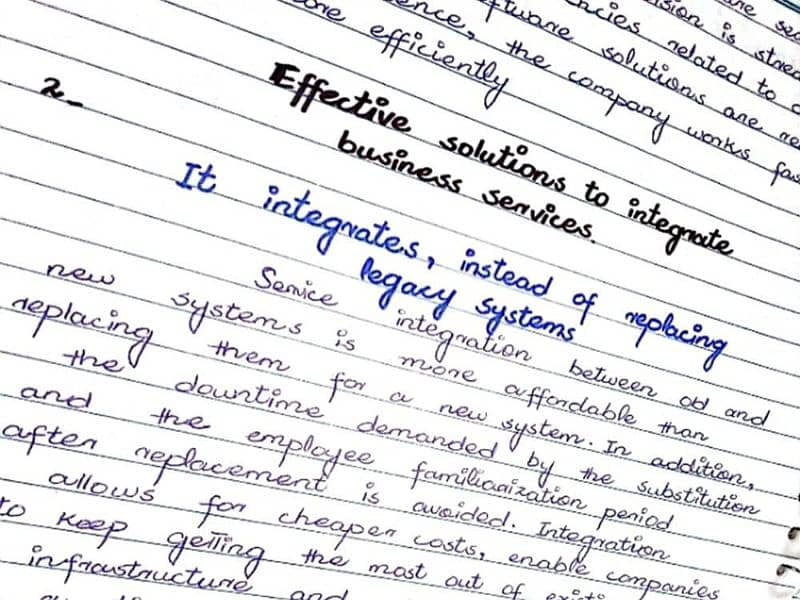 is stored
related to
solutions are
the company works
efficiently
2-
Effective solutions to integrate
business services.
It integrates, instead of replacing
legacy systems
Service integration between old and
new systems is more affordable than
replacing them for a new system. In addition,
the downtime demanded by the substitution
and the employee familiarization period
after replacement is avoided. Integration
allows for cheaper costs, enable companies
to keep getting the most out of
infraustructure and